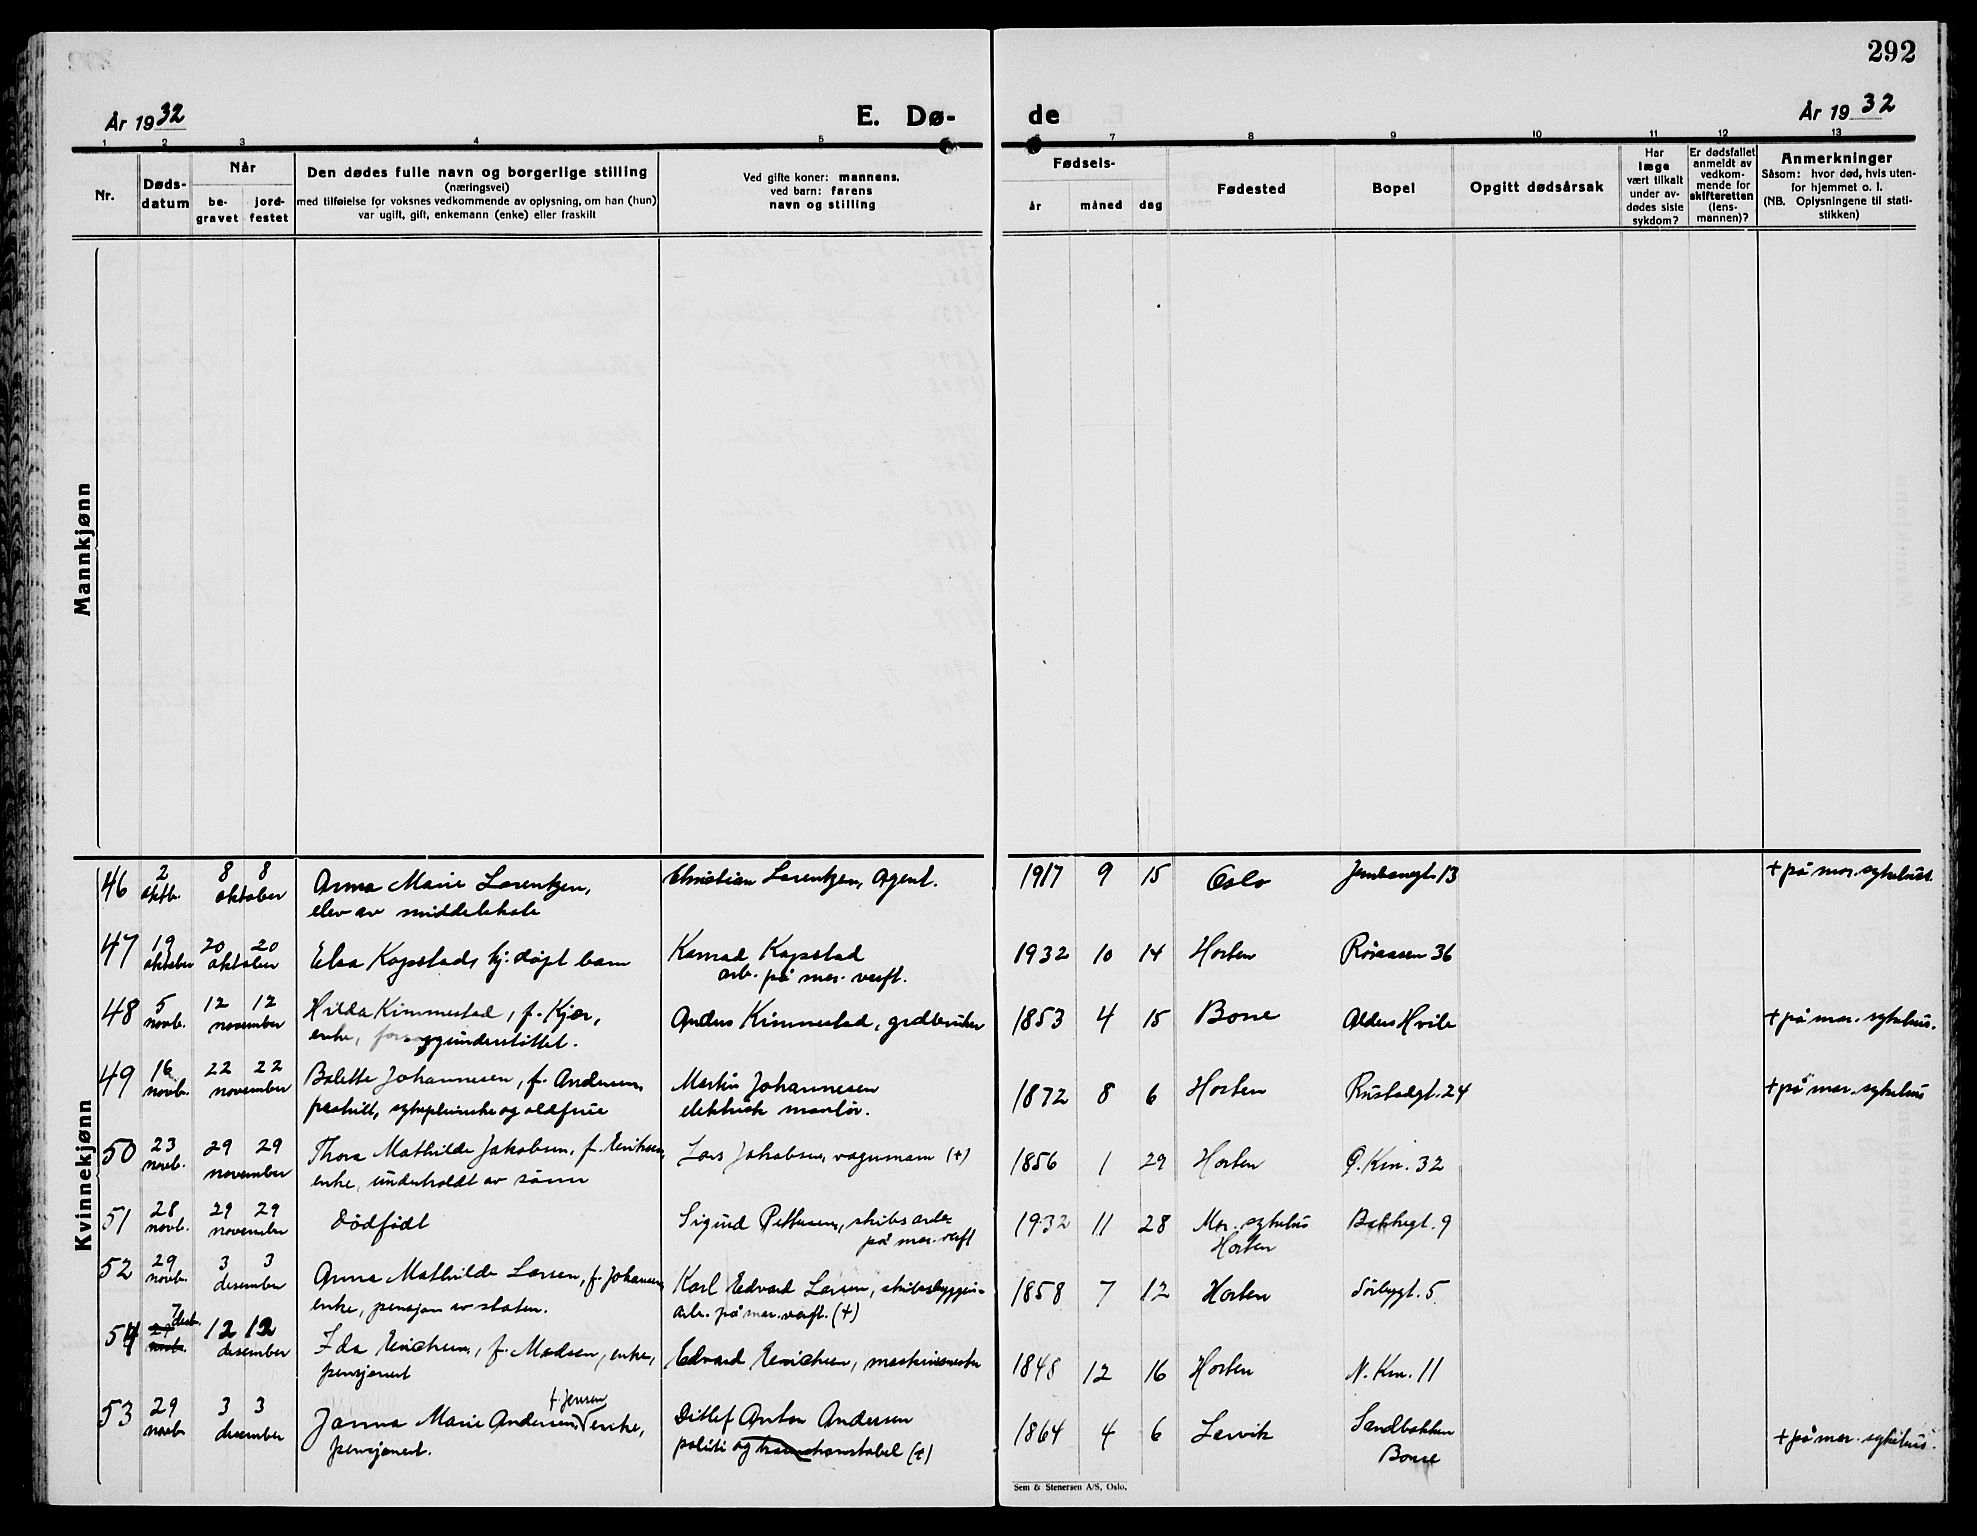 292
År 1932
E. Dø-
de
År 1932
1 2 3 4 5 6 7 8 9 10 11 12 13
Nr.
Døds-
datum
Når
be-
gravet
jord-
festet
Den dødes fulle navn og borgerlige stilling
(næringsvei)
med tilføielse for voksnes vedkommende av oplysning, om han (hun)
var ugift, gift, enkemann (enke) eller fraskilt
Ved gifte koner: mannens,
ved barn: farens
navn og stilling
Fødsels-
år måned dag
Fødested
Bopel
Opgitt dødsårsak
Har
læge
vært tilkalt
under av-
dødes siste
sykdom?
Er dødsfallet
anmeldt av
vedkom-
mende for
skifteretten
(lens-
mannen)?
Anmerkninger
Såsom: hvor død, hvis uten-
for hjemmet o. l.
(NB. Oplysningene til stati-
stikken)
Mannkjønn
Kvinnekjønn
46 2 8 8 Anna Marie Lorentzen, Christian Lorentzen, Agent. 1917 9 15 Oslo Jernbanegt. 13 + på mar. sykehus.
oktb. oktober elev av middelskole
47 19 20 20 Elsa Kopstads hj. døpt barn Konrad Kopstad 1932 10 14 Horten Røråsen 36
oktober oktober arb. på mar. verft.
48 5 12 12 Hilda Kimmestad, f. Kjær, Anders Kimmestad, grdbruker 1853 4 15 Borre Alders Hvile + på mar. sykehus.
novb. november enke, forsorgsunderstøttet.
49 16 22 22 Bolette Johannesen, f. Andersen, Martin Johannesen 1872 8 6 Horten Rustadgt. 24 + på mar. sykehus
novb. november fraskilt, sykepleierske og oldfrue elektrisk montør.
50 23 29 29 Thora Mathilde Jakobsen, f. Eriksen, Lars Jakobsen, vognmann (+) 1856 1 29 Horten Ø. Km. 32
novb. november enke, underholdt av sønn
51 28 29 29 Dødfødt Sigurd Pettersen, skibsarb. 1932 11 28 Mar. sykehus Bakkegt. 9
novb. november på mar. verft Horten
52 29 3 3 Anna Mathilde Larsen, f. Johansen, Karl Edvard Larsen, skibsbyggeri- 1858 7 12 Horten Sørbygt. 5
novb. desember enke, pensjon av staten. arb. på mar. verft. (+)
7 desb.
54 29 12 12 Ida Erichsen, f. Madsen, enke, Edvard Erichsen, maskinmester 1848 12 16 Horten N. Km. 11
novb. desember pensjonert
f. Jensen
53 29 3 3 Janna Marie Andersen, enke, Ditlef Anton Andersen 1864 4 6 Larvik Sandbakken
novb. desember pensjonert. politi og konstabel (+) Borre + på mar. sykehus.
Sem & Stenersen A/S, Oslo.